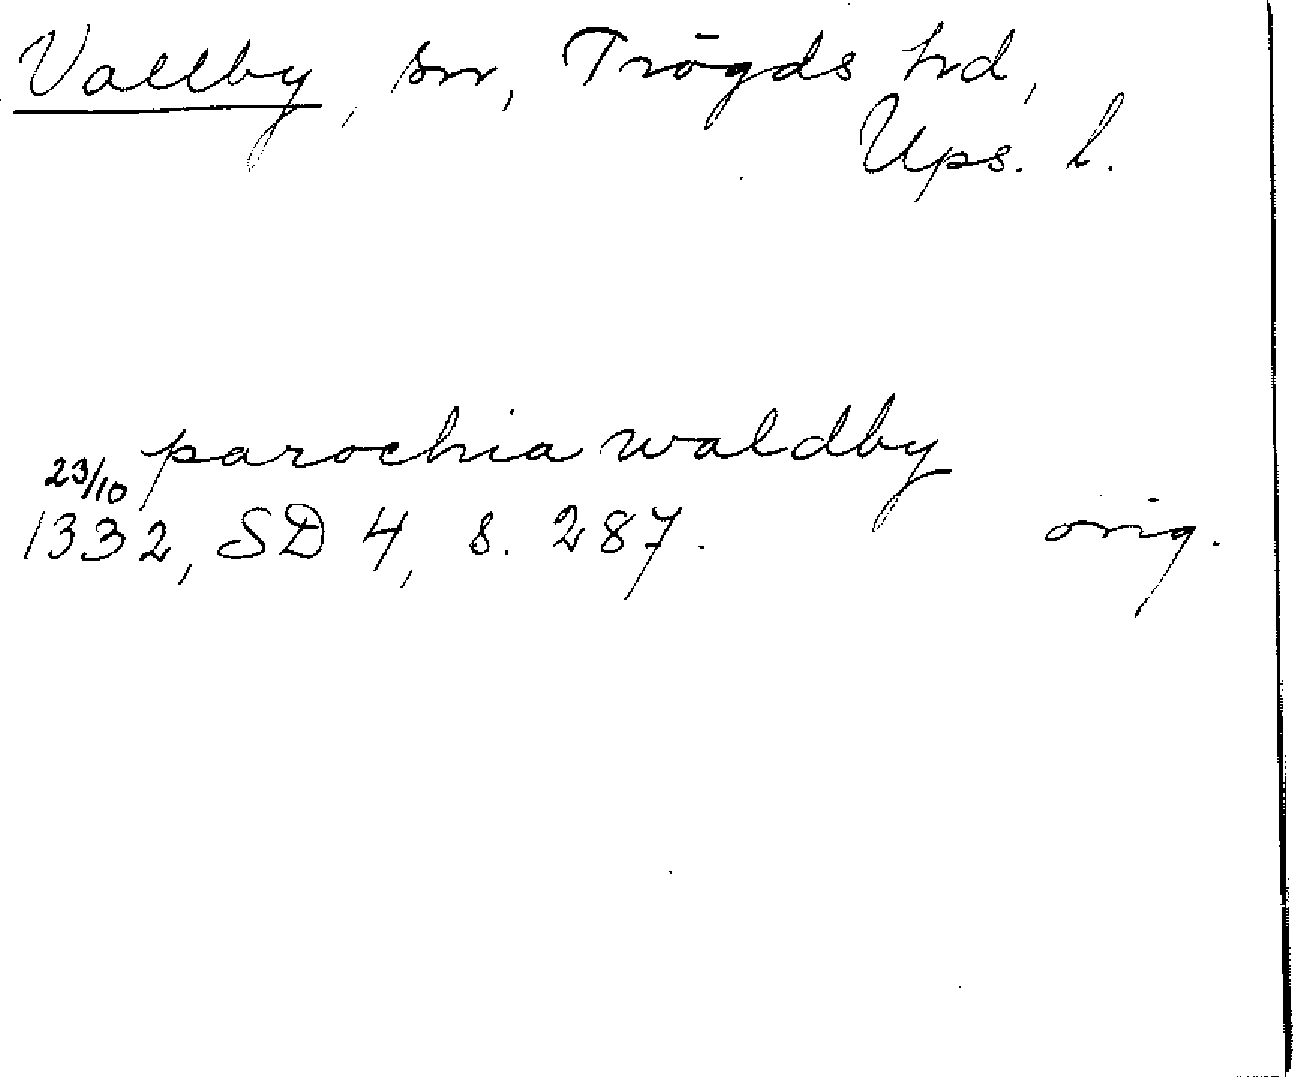 Vallby, sn, Trögds hd,
Ups. l.
parochia waldby
23/10
1332, SD 4, s. 287. orig.